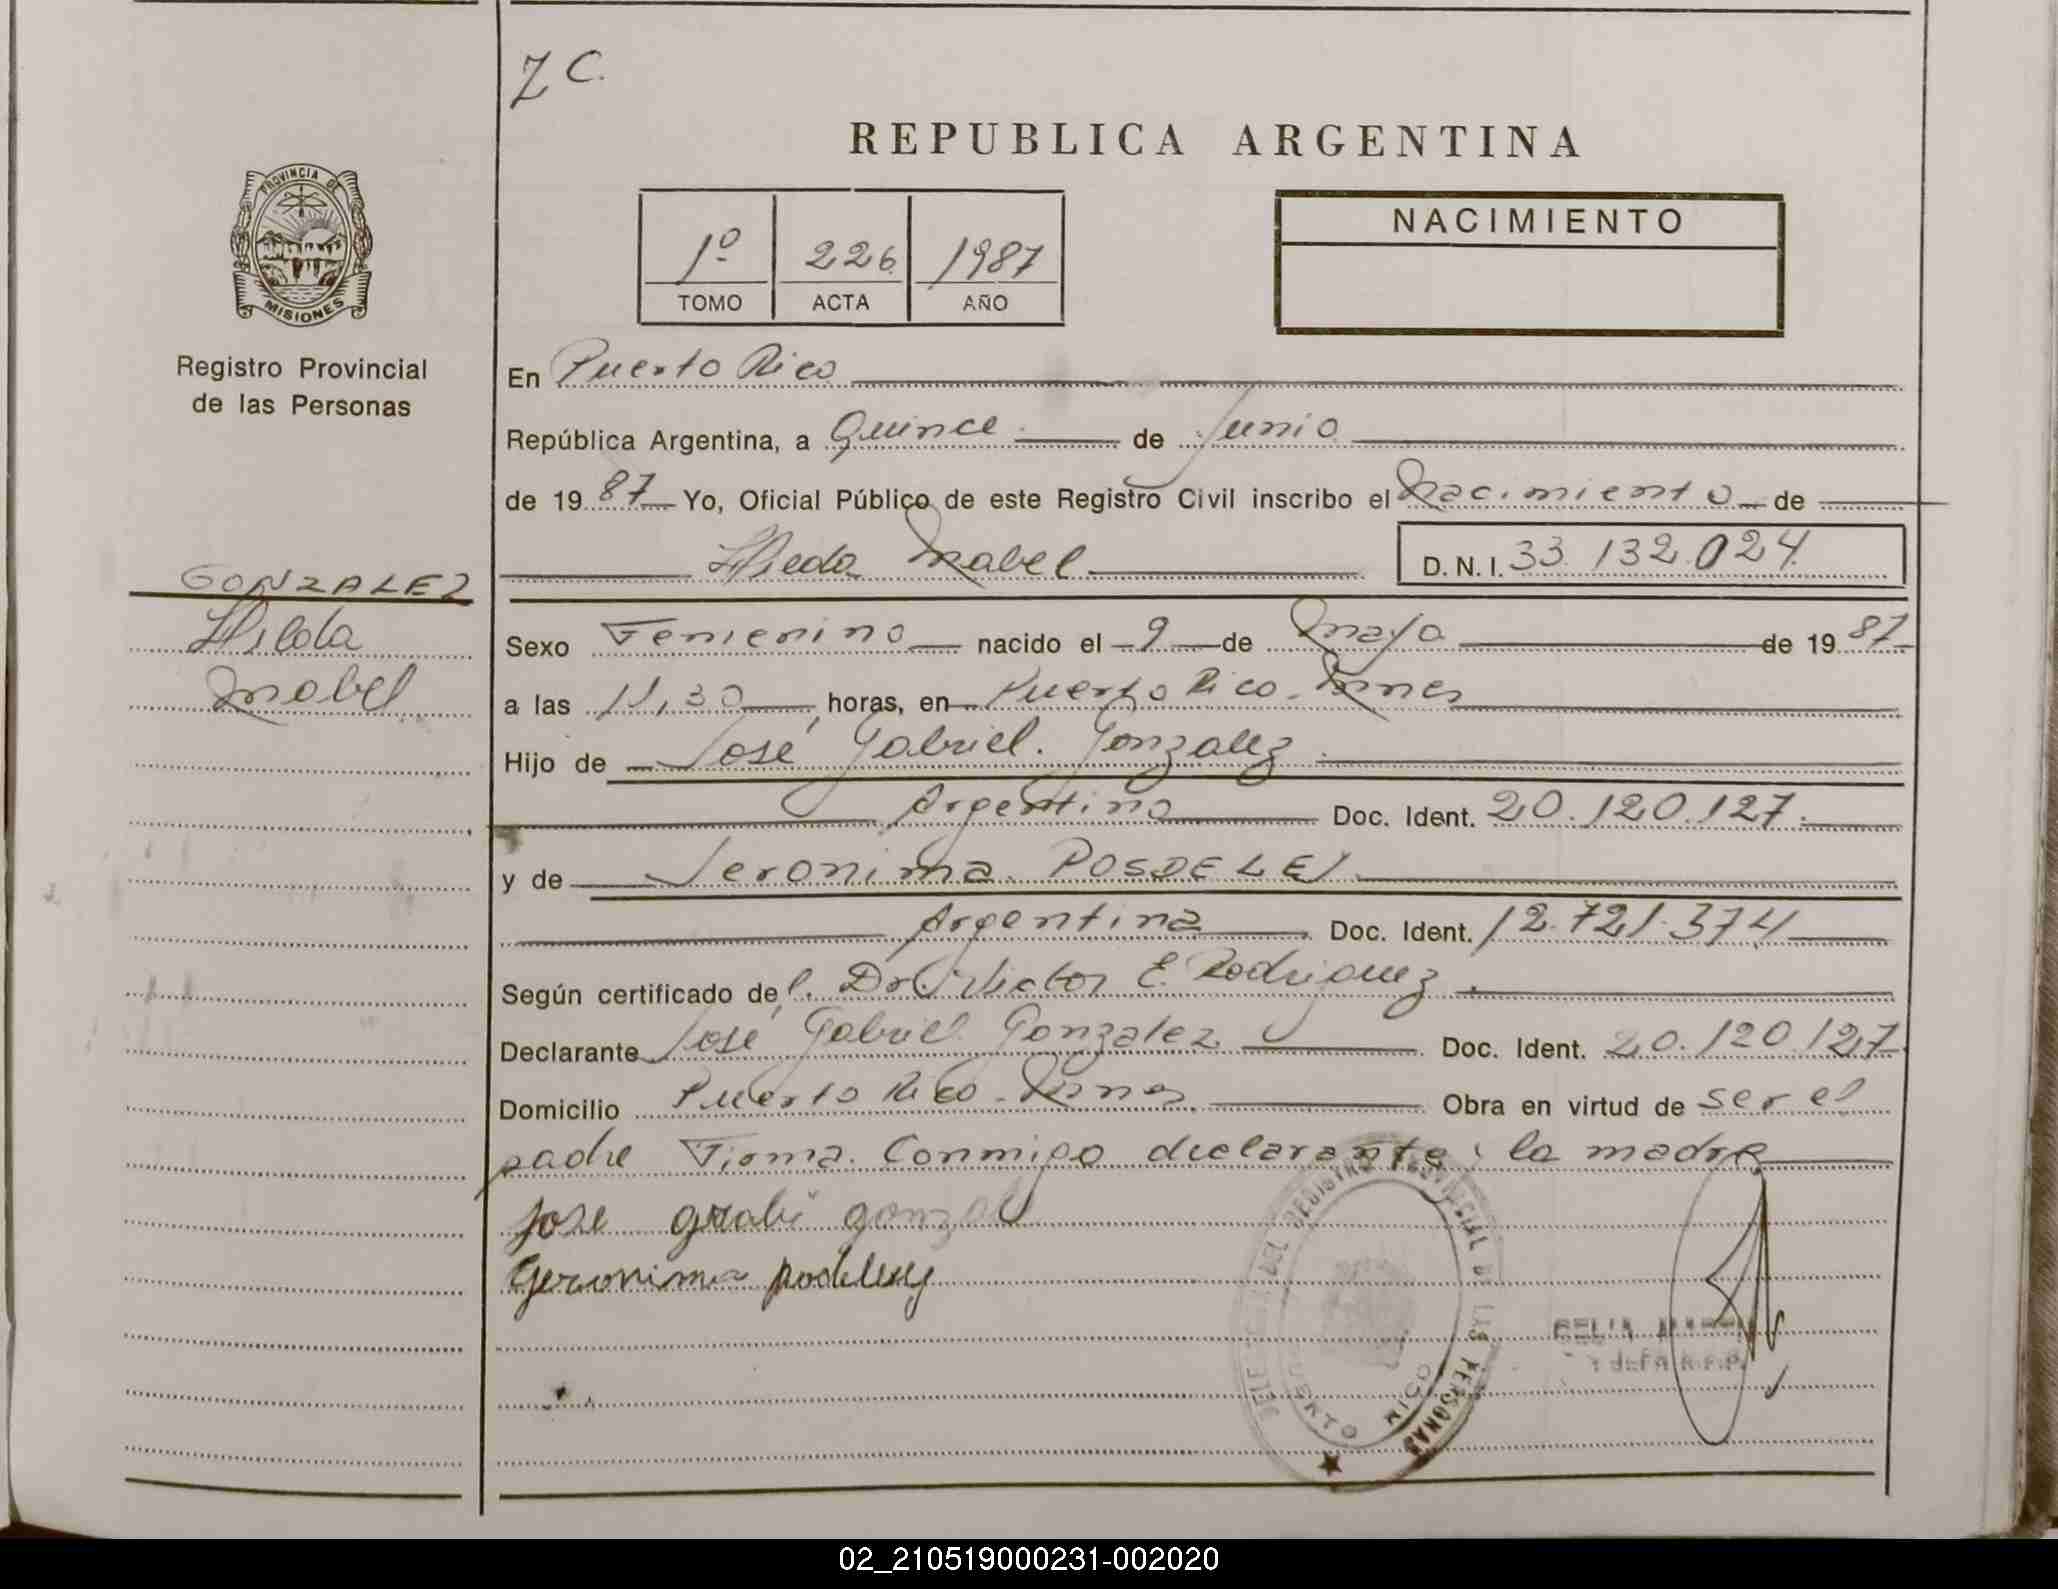 Z C.
REPUBLICA ARGENTINA
PROVINCIA DE
MISIONES
Registro Provincial
de las Personas
1º 226 1987
TOMO ACTA AÑO
NACIMIENTO
En Puerto Rico
República Argentina, a Quince de Junio
de 19 87 Yo, Oficial Público de este Registro Civil inscribo el Nacimiento de
Hilda Mabel D. N. I. 33 132.024
GONZALEZ
Hilda
Mabel
Sexo Femenino nacido el 9 de Mayo de 19 87
a las 11,30 horas, en Puerto Rico - Mnes
Hijo de José Gabriel Gonzalez
Argentino Doc. Ident. 20.120.127.
y de Jeronima POSDELEY
Argentina Doc. Ident. 12.721.374
Según certificado de l. Dr. Victor E. Rodriguez
Declarante José Gabriel Gonzalez Doc. Ident. 20.120.127
Domicilio Puerto Rico - Mnes Obra en virtud de ser el
padre Firma Conmigo declarante y la madre
jose gonzal
Geronima
JEFE DEL REGISTRO PROVINCIAL DE LAS PERSONAS
PUERTO RICO
02_210519000231-002020